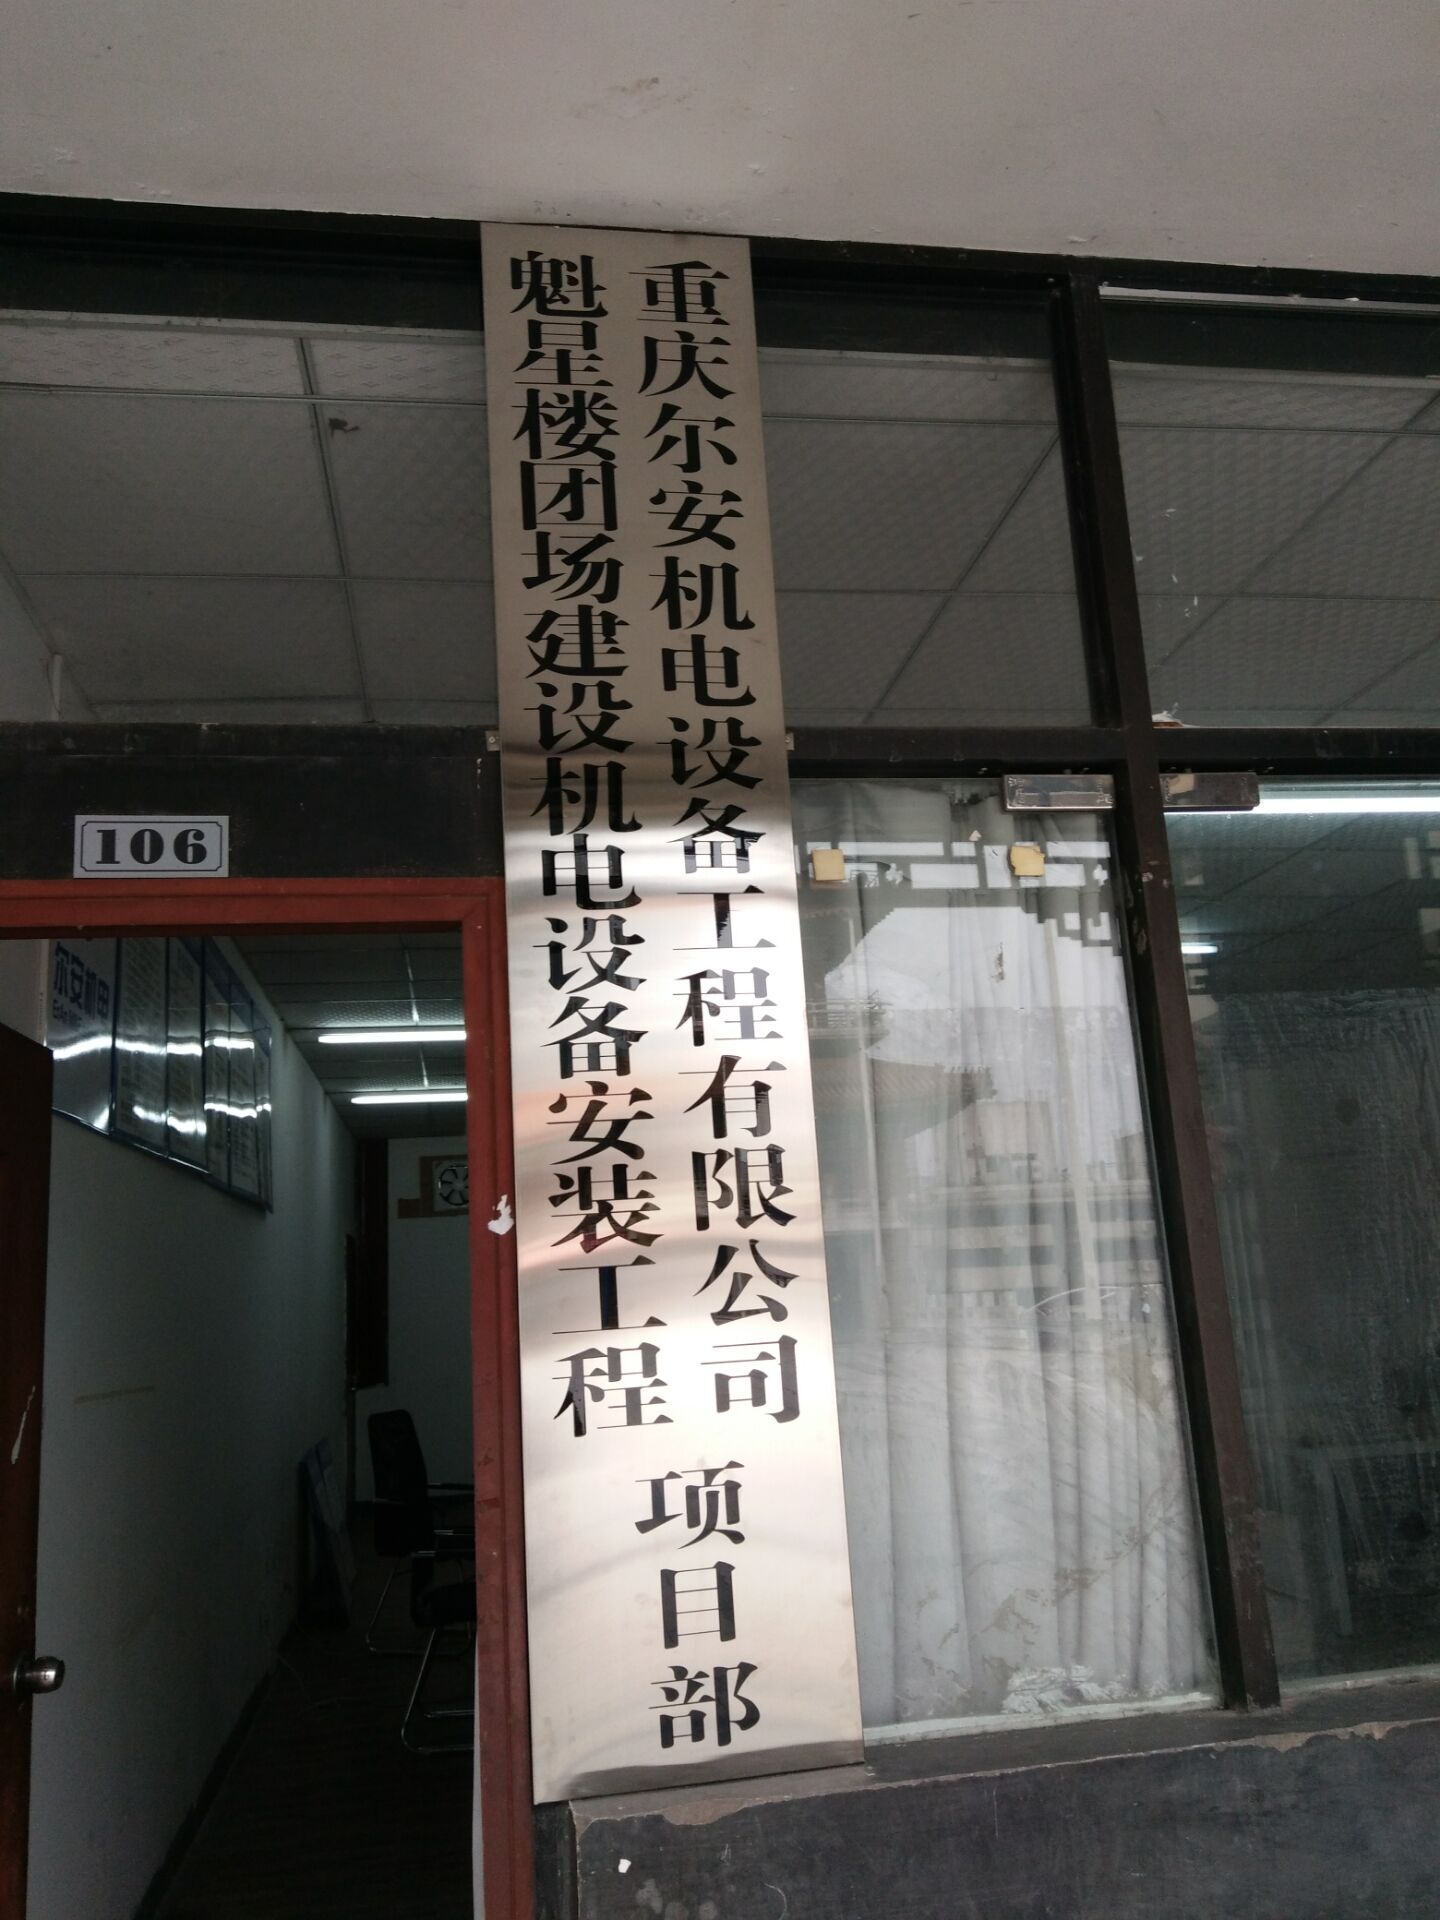 重庆尔安机电设备工程有限公司
魁星楼团场建设机电设备安装工程
项目部
106
尔安机电